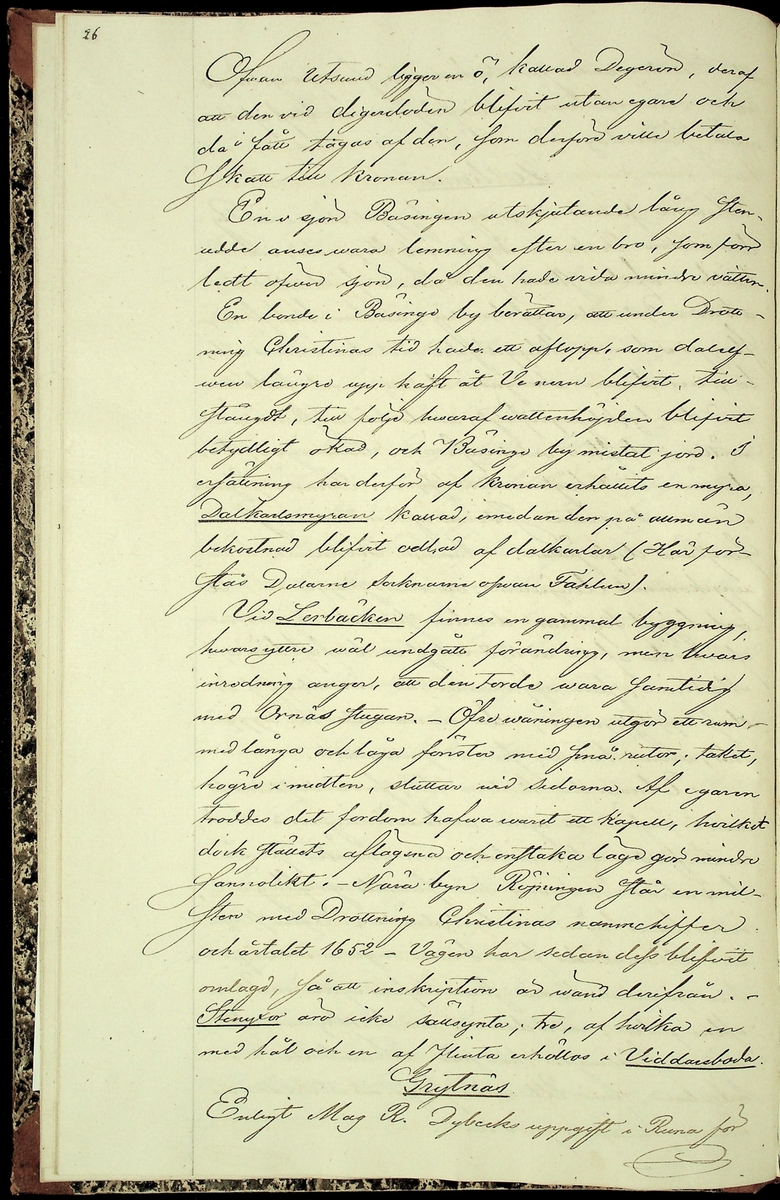 26
Ofwan Utsund ligger en ö, kallad Degerön, deraf
att den vid digerdöden blifvit utan egare och
då fått tagas af den, som derföre ville betala
skatt till kronan.
En i sjön Båsingen utskjutande lång sten-
udde anses wara lemning efter en bro, som förr
ledt öfver sjön, då den hade vida mindre vatten.
En bonde i Båsinge by berättar, att under Drott-
ning Christinas tid hade ett aflopp, som dalelf-
wen längre upp haft åt Venern blifvit till-
stängdt, till följe hwaraf wattenhöjden blifvit
betydligt ökad, och Båsinge by mistat jord. I
ersättning har derför af kronan erhållits en myra,
Dalkarlsmyran kallad, emedan den på allmän
bekostnad blifvit odlad af dalkarlar (Här för-
stås Dalarne socknarne ofvan Fahlun).
Vid Lerbäcken finnes en gammal byggning,
hwars yttre wäl undgått förändring, men hwars
inredning anger, att den torde wara samtidig
med Ornäs stugan. – Öfre wåningen utgör ett rum
med långa och låga fönster med små rutor; taket,
högre i midten, sluttar vid sidorna. Af egaren
troddes det fordom hafwa warit ett kapell, hvilket
dock ställets aflägsna och enstaka läge gör mindre
sannolikt. – Nära byn Röjningen står en mil-
sten med Drottning Christinas namnchiffer
och årtalet 1652 – Vägen har sedan dess blifvit
omlagd, så att inskription är wänd derifrån. –
Stenyxor äro icke sällsynta; tre, af hvilka en
med hål och en af flinta erhöllos i Viddarsboda.
Grytnäs
Enligt Mag R. Dybecks uppgift i Runa för